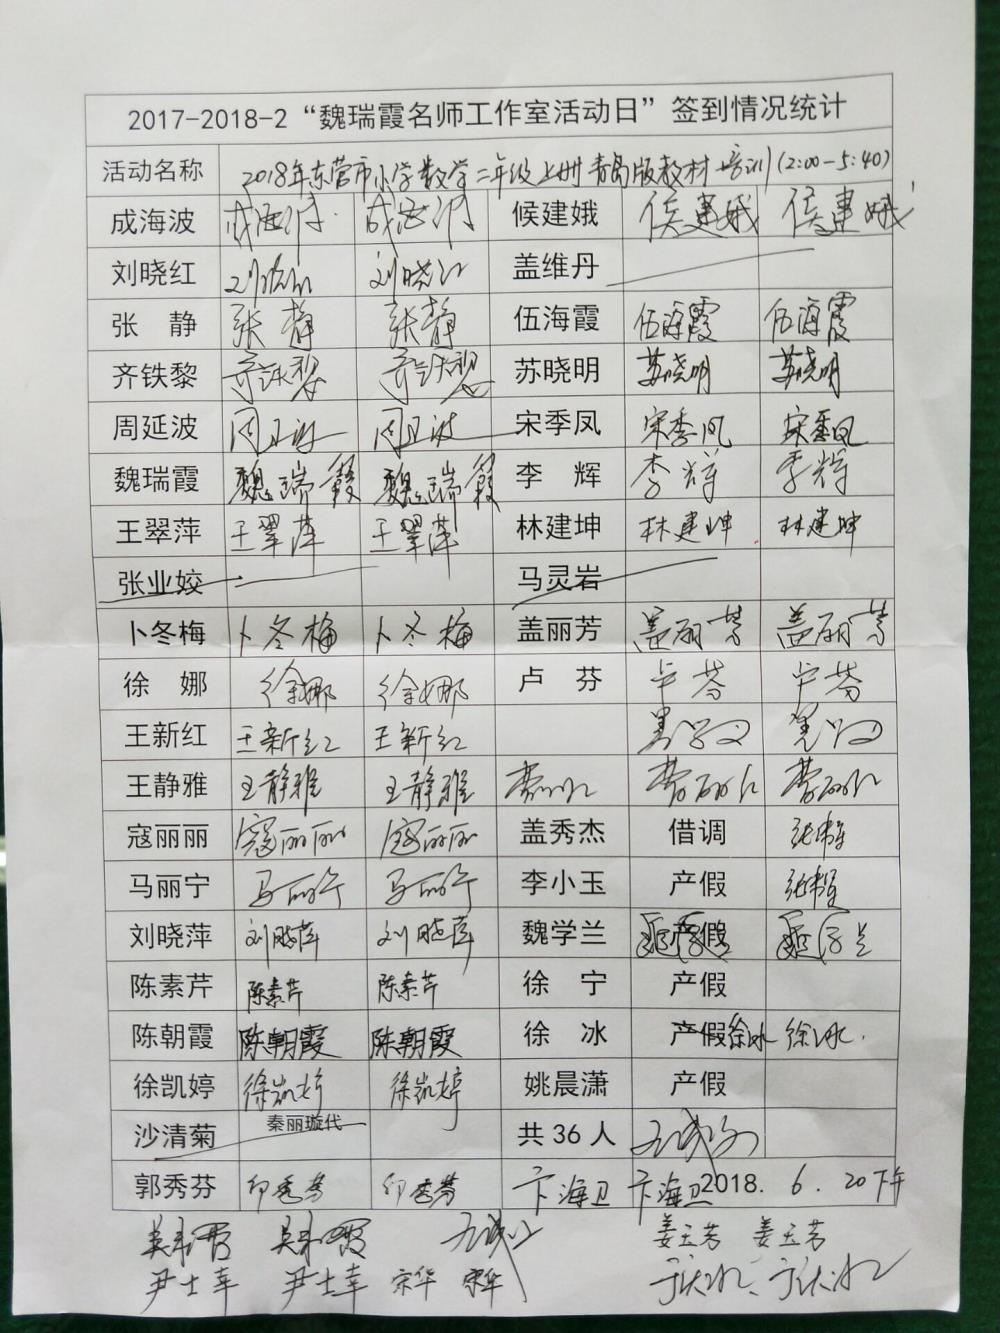 2017-2018-2 “魏瑞霞名师工作室活动日” 签到情况统计
活动名称 2018年东营市小学数学二年级上册青岛版教材培训(2:00-5:40)
成海波 成海波 成海波 候建娥 侯建娥 侯建娥
刘晓红 刘晓红 刘晓红 盖维丹
张 静 张静 张静 伍海霞 伍海霞 伍海霞
齐铁黎 齐铁黎 齐铁黎 苏晓明 苏晓明 苏晓明
周延波 周延波 周延波 宋季凤 宋季凤 宋季凤
魏瑞霞 魏瑞霞 魏瑞霞 李 辉 李辉 李辉
王翠萍 王翠萍 王翠萍 林建坤 林建坤 林建坤
张业姣 马灵岩
卜冬梅 卜冬梅 卜冬梅 盖丽芳 盖丽芳 盖丽芳
徐 娜 徐娜 徐娜 卢 芬 卢芬 卢芬
王新红 王新红 王新红
王静雅 王静雅 王静雅
寇丽丽 寇丽丽 寇丽丽 盖秀杰 借调
马丽宁 马丽宁 马丽宁 李小玉 产假
刘晓萍 刘晓萍 刘晓萍 魏学兰 产假 魏学兰
陈素芹 陈素芹 陈素芹 徐 宁 产假
陈朝霞 陈朝霞 陈朝霞 徐 冰 产假 徐冰 徐冰
徐凯婷 徐凯婷 徐凯婷 姚晨潇 产假
沙清菊 秦丽璇代 共36人
郭秀芬 郭秀芬 郭秀芬 卞海卫 卞海卫 2018. 6. 20下午
姜玉芳 姜玉芳
尹士幸 尹士幸 宋华 宋华